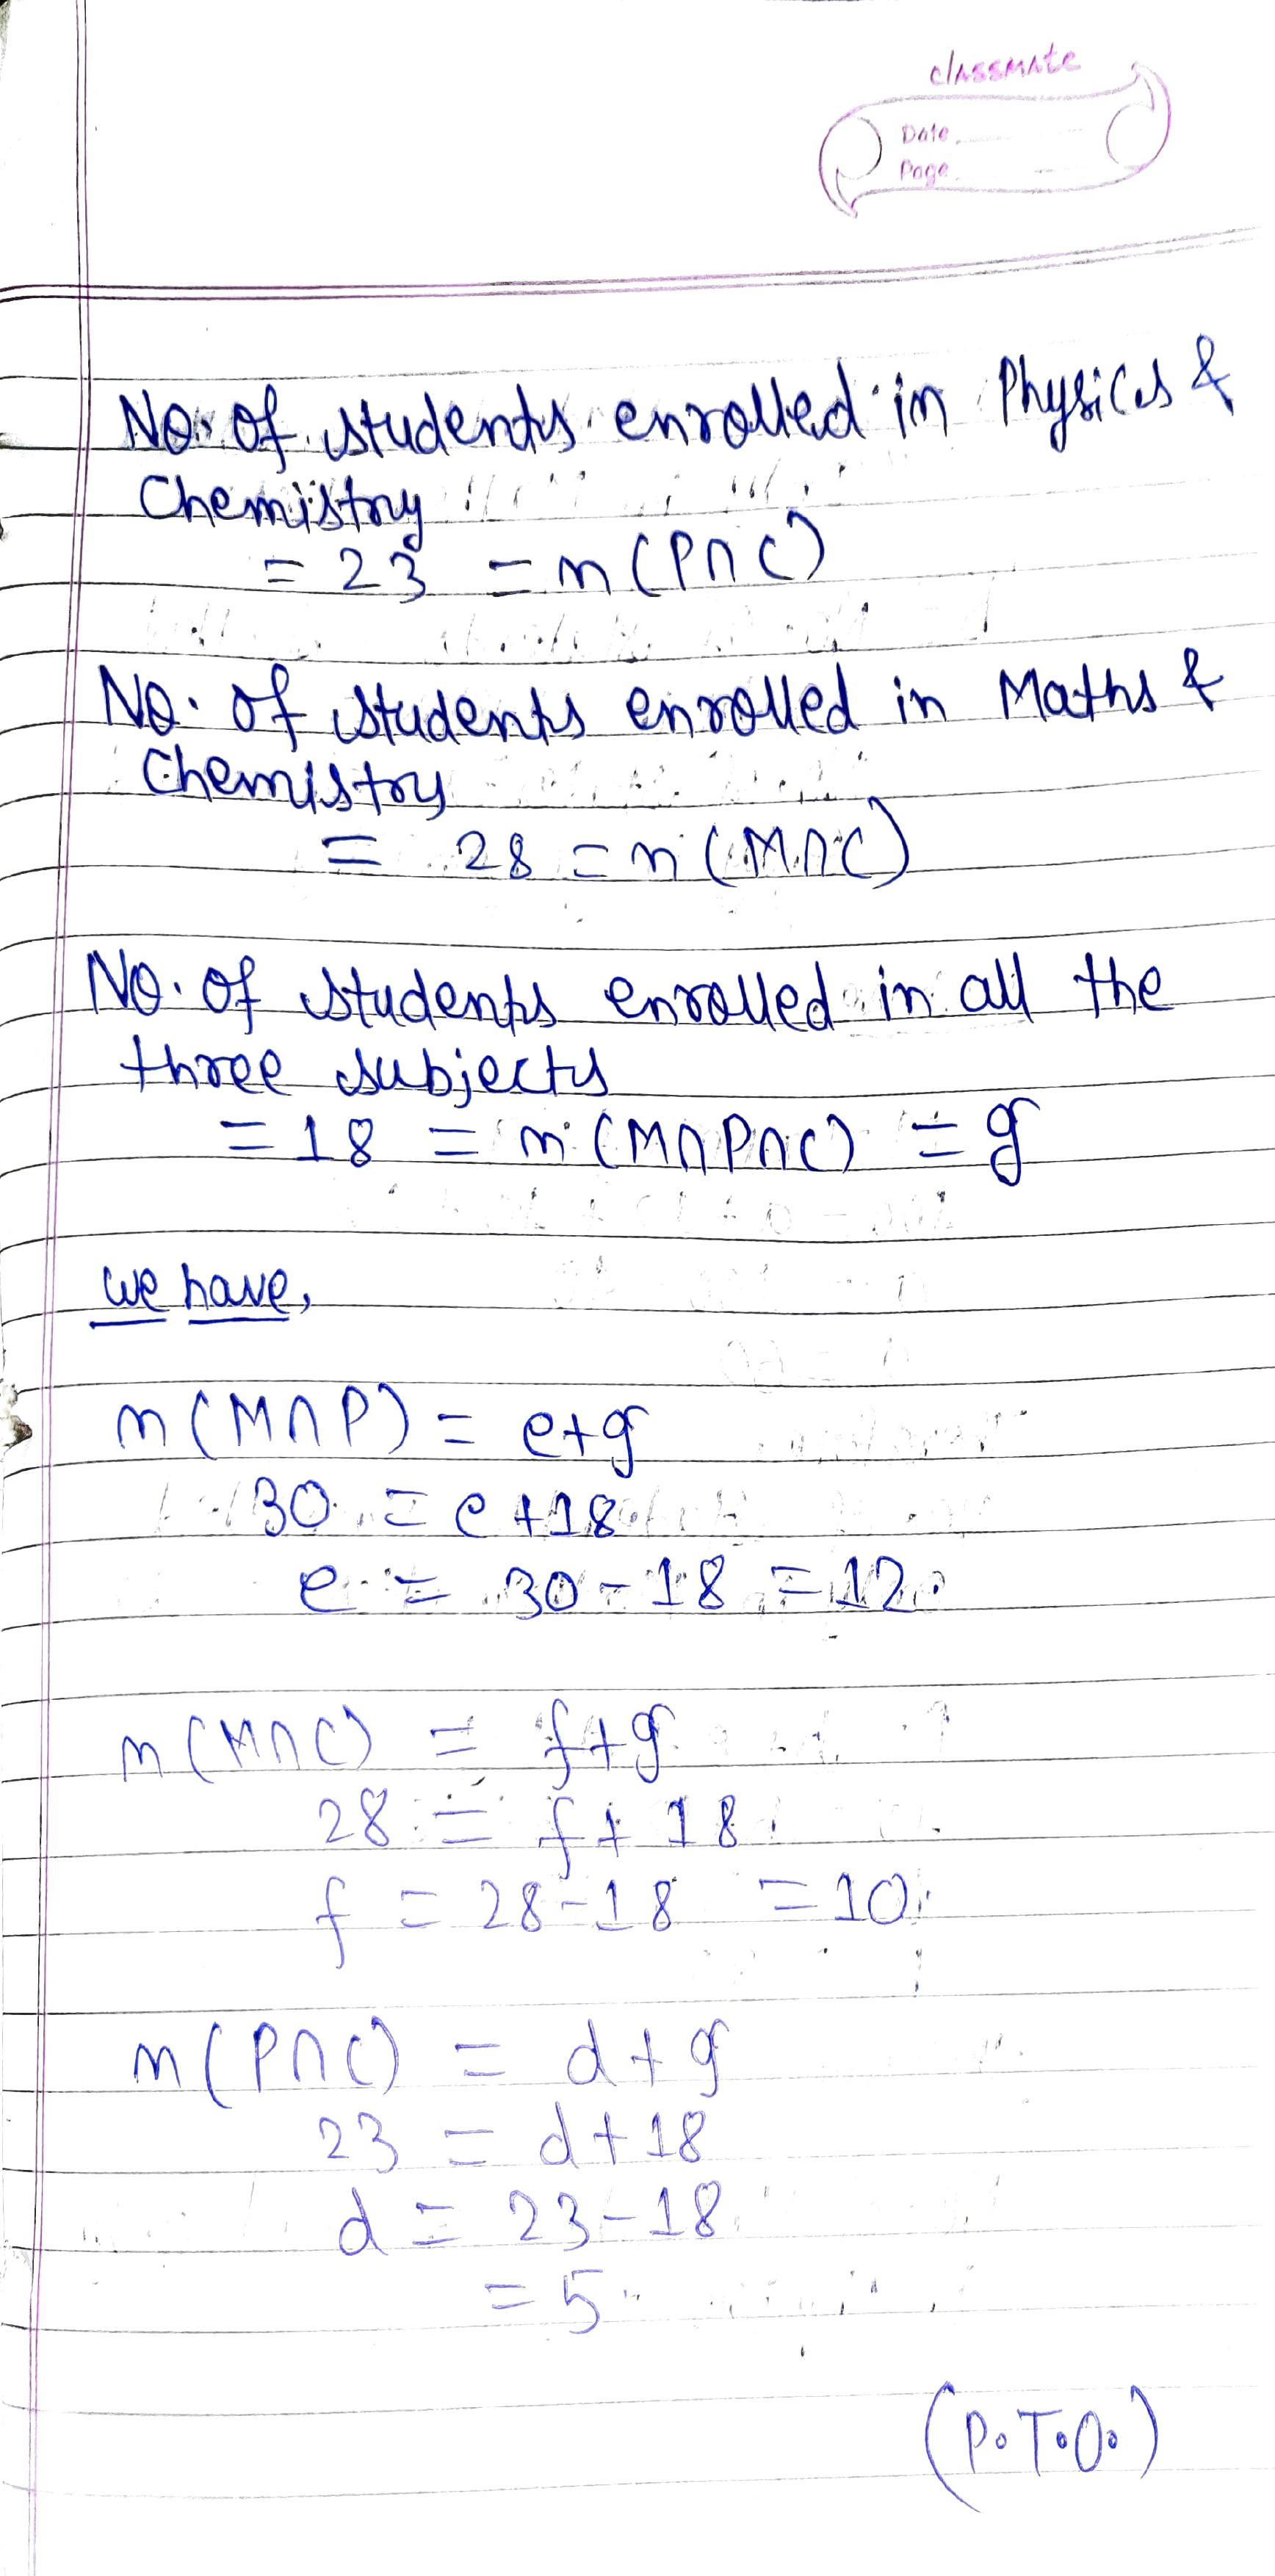 classmate
Date
Page
No. of students enrolled in Physics &
Chemistry
= 23 = n(P∩C)
No. of students enrolled in Maths &
Chemistry
= 28 = n(M∩C)
No. of students enrolled in all the
three subjects
= 18 = n(M∩P∩C) = g
we have,
n(M∩P) = e+g
30 = e+18
e = 30-18 = 12
n(M∩C) = f+g
28 = f+18
f = 28-18 = 10
n(P∩C) = d+g
23 = d+18
d = 23-18
= 5
(P.T.O.)